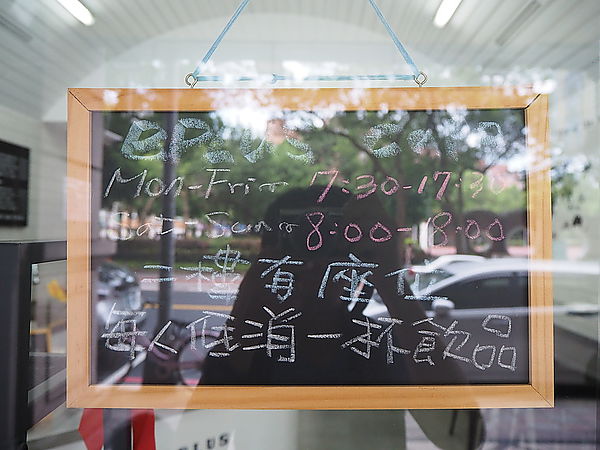 Plus
Mon-Fri 7:30-17:30
Sat-Sun 8:00-18:00
二樓有座位
每人低消一杯飲品
PLUS